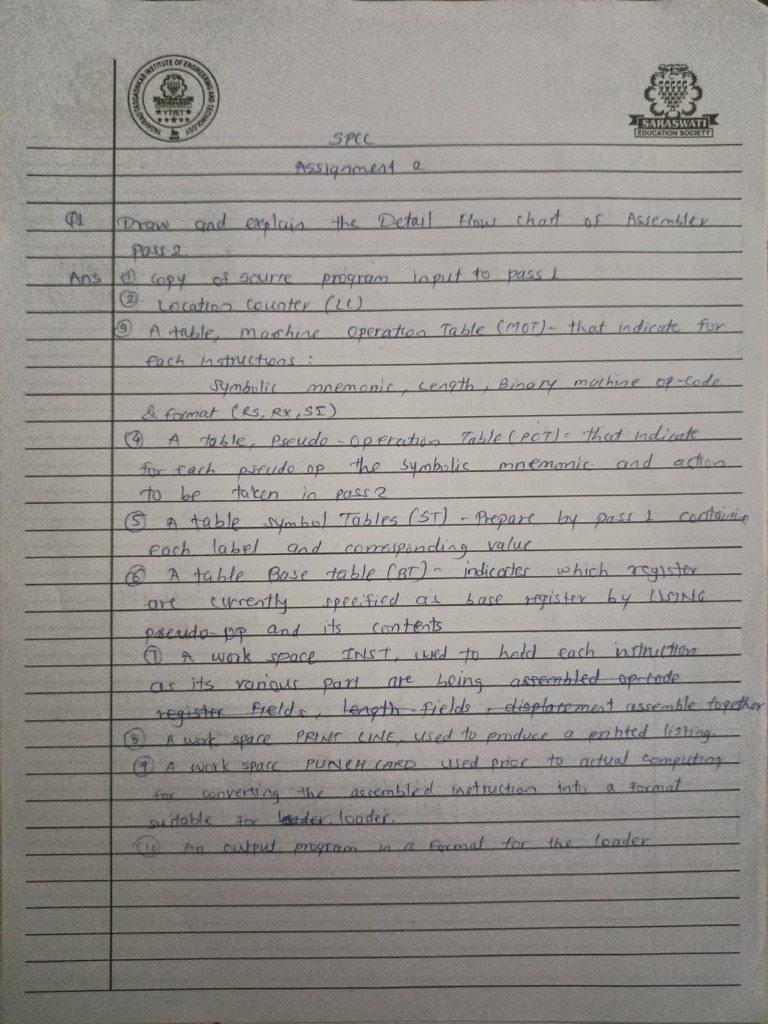 YADAVRAO TASGAONKAR INSTITUTE OF ENGINEERING AND TECHNOLOGY
YTIET
SARASWATI
EDUCATION SOCIETY
SPCC
Assignment 2
Q1 Draw and explain the Detail flow chart of Assembler
Pass 2.
Ans ① Copy of source program input to pass 1
② Location Counter (LC)
③ A table, Machine Operation Table (MOT) - that indicate for
each instructions :
Symbolic mnemonic, Length, Binary machine op-code
& format (RS, RX, SI)
④ A table, Pseudo-Operation Table (POT) - that indicate
for each pseudo op the symbolic mnemonic and action
to be taken in pass 2
⑤ A table symbol Tables (ST) - Prepare by pass 1 containing
each label and corresponding value
⑥ A table Base table (BT) - indicates which register
are currently specified as base register by USING
pseudo-op and its contents
⑦ A work space INST, used to hold each instruction
as its various part are being assembled op-code
register fields, length-fields, displacement assemble together
⑧ A work space PRINT LINE, used to produce a printed listing.
⑨ A work space PUNCH CARD used prior to actual computing
for converting the assembled instruction into a format
suitable for loader.
⑩ An output program in a format for the loader